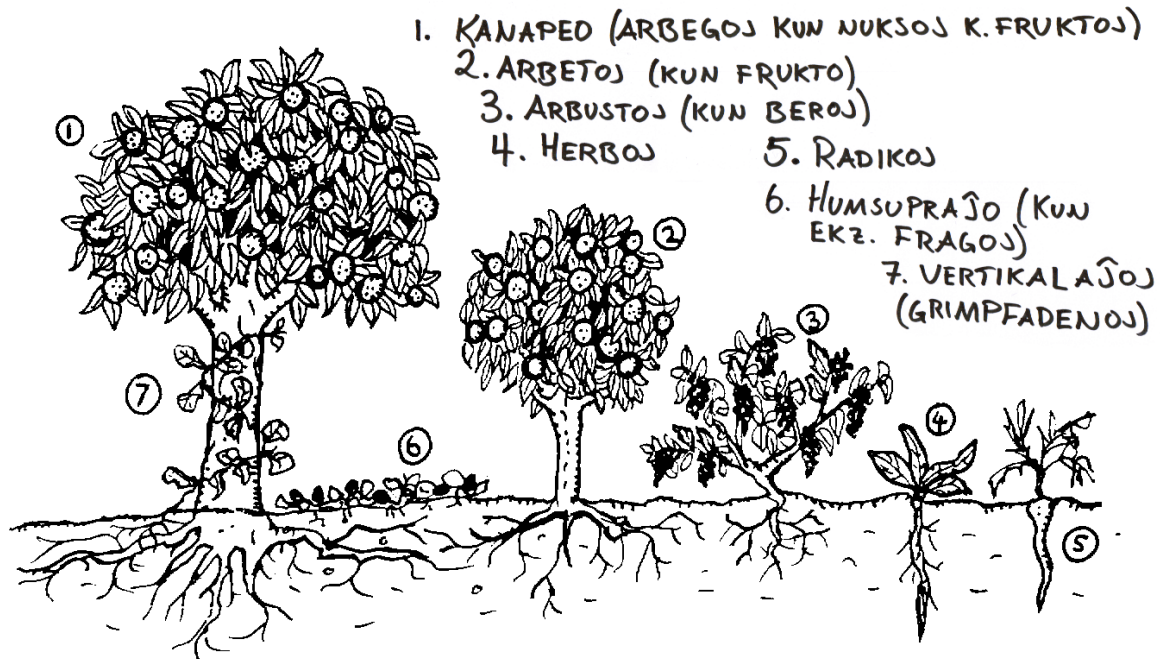 1. KANAPEO (ARBEGOJ KUN NUKSOJ K. FRUKTOJ)
2. ARBETOJ (KUN FRUKTO)
3. ARBUSTOJ (KUN BEROJ)
4. HERBOJ
5. RADIKOJ
6. HUMSUPRAĴO (KUN
EKZ. FRAGOJ)
7. VERTIKALAĴOJ
(GRIMPFADENOJ)
1
2
3
4
5
6
7